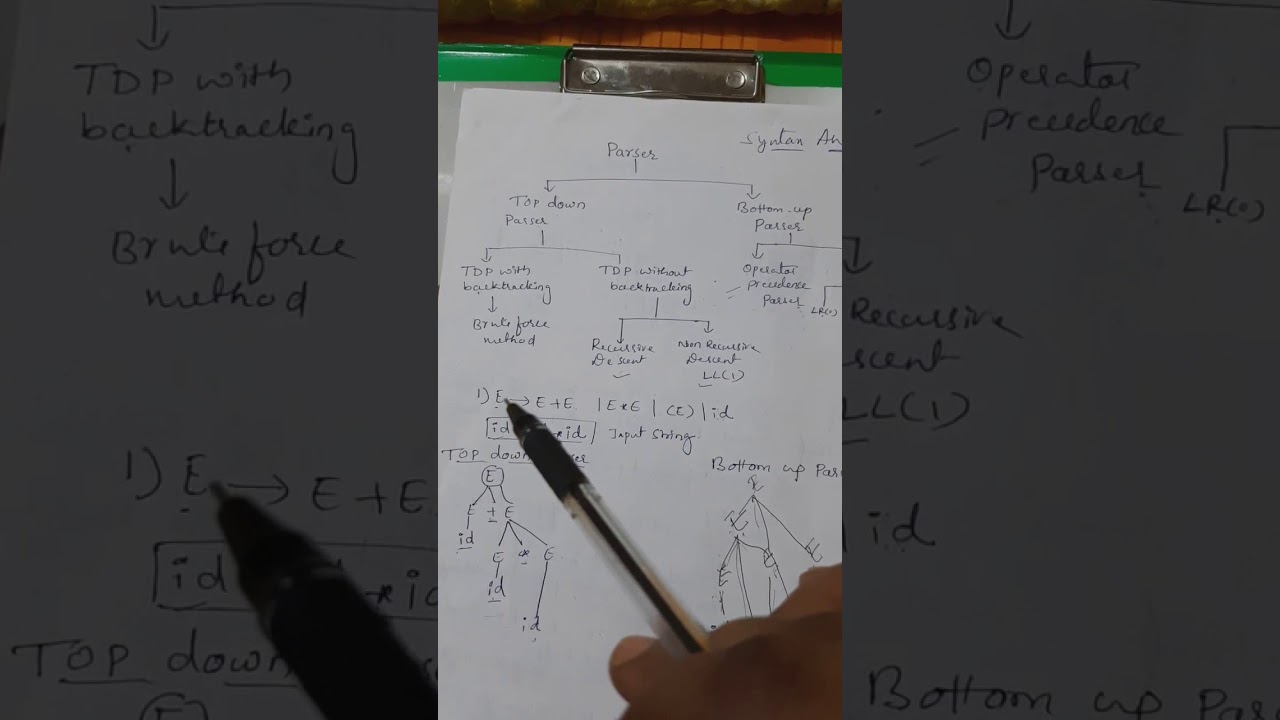 Syntax An
Parser
Top down
Parser
Bottom-up
Parser
TDP with
backtracking
TDP without
backtracking
Operator
precedence
Parser
LR(0)
Brute force
method
Recursive
Descent
Non Recursive
Descent
LL(1)
1) E → E + E | E * E | (E) | id
id * id Input String
TOP down
E
E + E
id
E * E
id
id
Bottom up Par
E